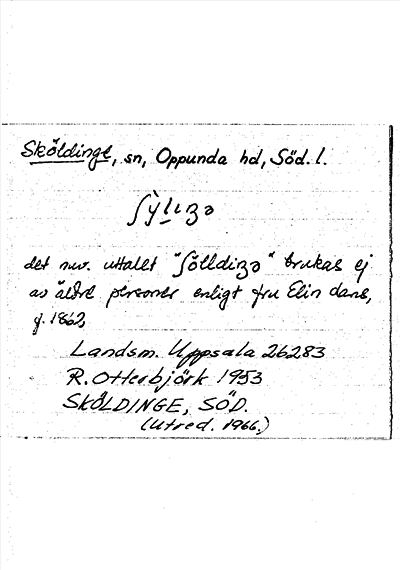 Sköldinge, sn, Oppunda hd, Söd. l.
ʃỳllʒə
det nuv. uttalet "ʃölldiʒə" brukas ej
av äldre personer enligt fru Elin dans,
f. 1862,
Landsm. Uppsala 26283
R. Otterbjörk 1953
SKÖLDINGE, SÖD.
(Utred. 1966.)